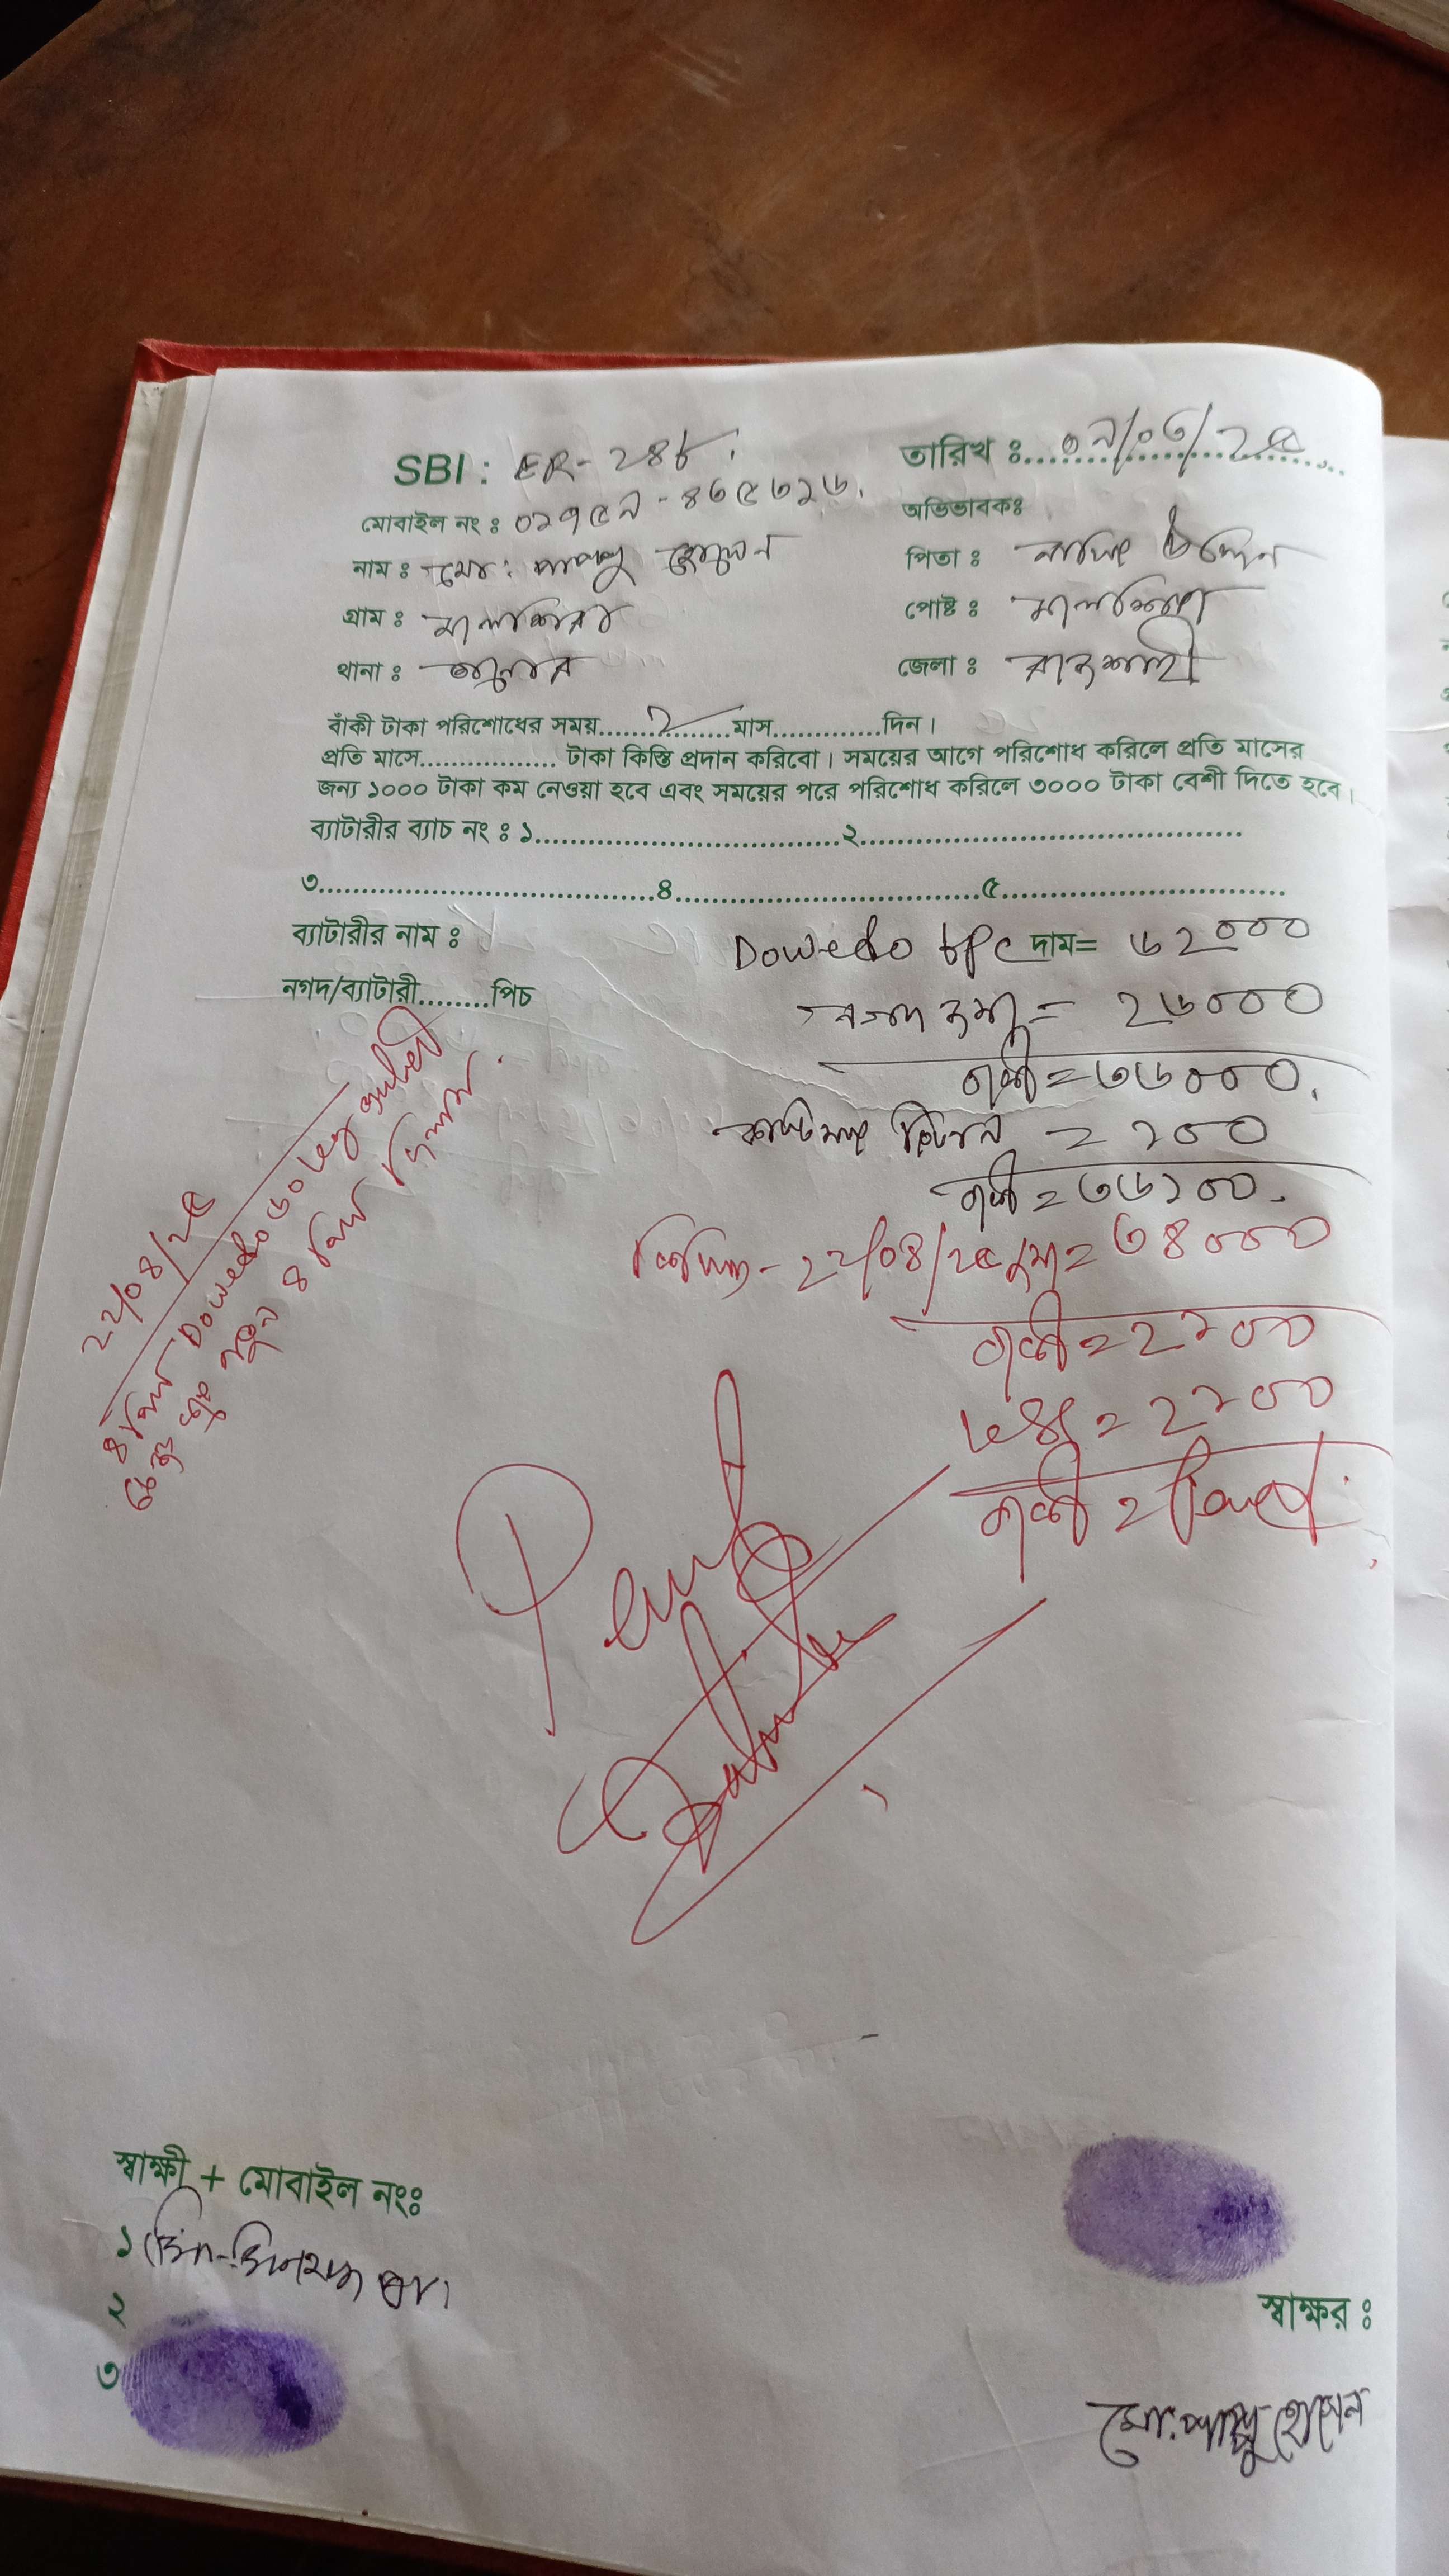 SBI : ER- 248
তারিখ ঃ ০৯/০৩/২৫
মোবাইল নং ঃ ০১৭৫৯-৪৬৫৬২৬
অভিভাবকঃ
নাম ঃ মো: পাপ্পু হোসেন
পিতা ঃ উদ্দিন
গ্রাম ঃ মালশিরা
পোষ্ট ঃ মালশিরা
থানা ঃ তানোর
জেলা ঃ রাজশাহী
বাঁকী টাকা পরিশোধের সময়.......২........মাস.............দিন।
প্রতি মাসে................. টাকা কিস্তি প্রদান করিবো। সময়ের আগে পরিশোধ করিলে প্রতি মাসের
জন্য ১০০০ টাকা কম নেওয়া হবে এবং সময়ের পরে পরিশোধ করিলে ৩০০০ টাকা বেশী দিতে হবে।
ব্যাটারীর ব্যাচ নং ঃ ১.......................................২.............................................
৩.......................................৪....................................৫..................................
ব্যাটারীর নাম ঃ
Dowedo ৮Pc দাম= ৬২০০০
নগদ/ব্যাটারী........পিচ
নগদ জমা = ২৬০০০
বাকী = ৩৬০০০
= ১০০
বাকী = ৩৬১০০
২২/০৪/২৫ জমা = ৩৪০০০
বাকী = ২১০০
= ২১০০
বাকী = Paid
২২/০৪/২৫
৪ পিচ Dowedo
নতুন ৪ পিচ দিলাম
Paid
স্বাক্ষী + মোবাইল নংঃ
১
২
৩
স্বাক্ষর ঃ
মো: পাপ্পু হোসেন